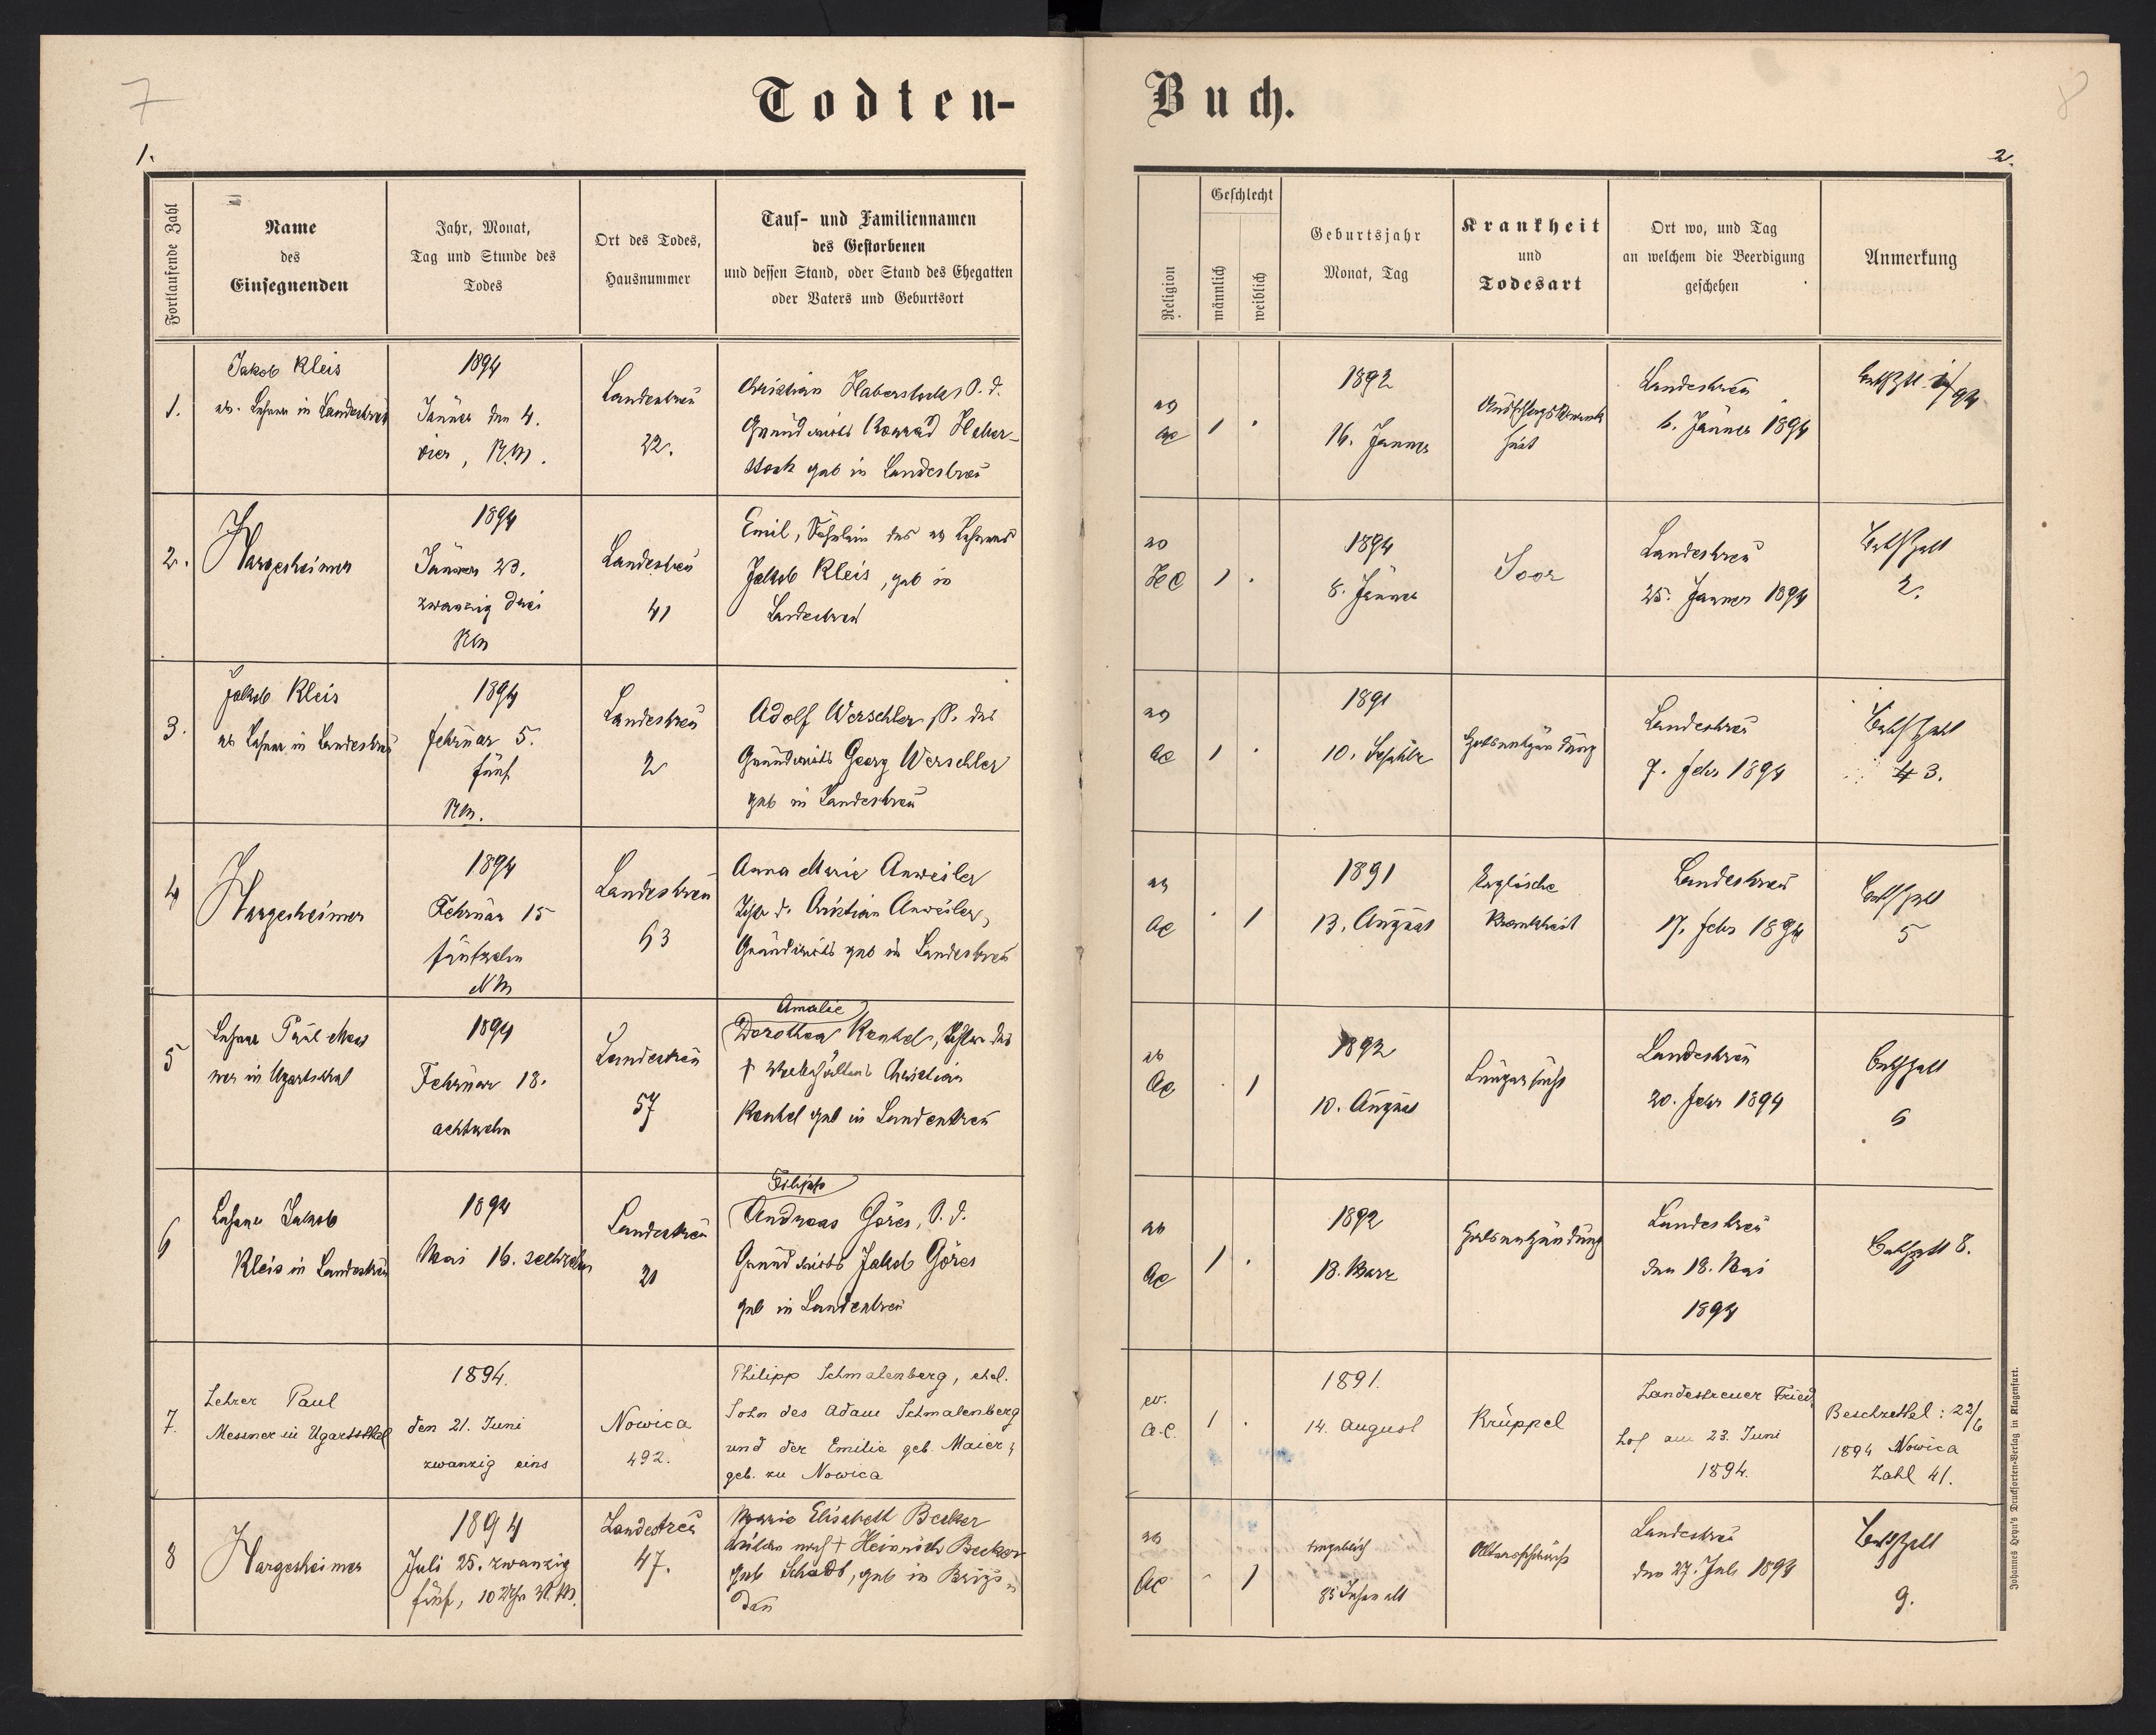 7
8
Todten-
Buch.
1.
2.
Fortlaufende Zahl
Name
des
Einsegnenden
Jahr, Monat,
Tag und Stunde des
Todes
Ort des Todes,
Hausnummer
Tauf- und Familiennamen
des Gestorbenen
und dessen Stand, oder Stand des Ehegatten
oder Vaters und Geburtsort
Religion
Geschlecht
männlich
weiblich
Geburtsjahr
Monat, Tag
Krankheit
und
Todesart
Ort wo, und Tag
an welchem die Beerdigung
geschehen
Anmerkung
1.
Jakob Kleis
ev. Lehrer in Landestreu
1894
Jänner den 4.
vier, N.M.
Landestreu
22.
Christian Haberstock, S. d.
Grundwirts Konrad Haber-
stock geb in Landestreu
ev
AC
1
1892
16. Janner
Landestreu
6. Jänner 1894
2.
Hargesheimer
1894
Jänner 23.
zwanzig drei
NM
Landestreu
41
Emil, Söhnlein des ev Lehrers
Jakob Kleis, geb in
Landestreu
ev
HC
1
1894
8. Jänner
Soor
Landestreu
25. Janner 1894
2.
3.
Jakob Kleis
ev Lehrer in Landestreu
1894
Februar 5.
fünf
NM.
Landestreu
2
Adolf Werschler, S. des
Grundwirts Georg Werschler
geb in Landestreu
ev
AC
1
1891
10. Septbr
Halsentzündung
Landestreu
7. Febr 1894
3.
4
Hargesheimer
1894
Februar 15
fünfzehn
NM
Landestreu
63
Anna Marie Anweiler
Tchtr d. Christian Anweiler,
Grundwirts geb in Landestreu
ev
AC
1
1891
13. August
Englische
Krankheit
Landestreu
17. Febr 1894
5
5
Lehrer Paul Mess
ner in Ugartsthal
1894
Februar 18.
achtzehn
Landestreu
57
Amalie
Dorothea Kentel, Tochter des
Christian
Kentel geb in Landestreu
ev
AC
1
1892
10. August
Lungensucht
Landestreu
20. Febr 1894
6
6
Lehrer Jakob
Kleis in Landestreu
1894
Mai 16. sechzehn
Landestreu
21
Filipp
Andreas Göres, S. d.
Grundwirts Jakob Göres
geb in Landestreu
ev
AC
1
1892
18. März
Halsentzündung
Landestreu
den 18. Mai
1894
8.
7.
Lehrer Paul
Messner in Ugartsthal
1894.
den 21. Juni
zwanzig eins
Nowica
492.
Philipp Schmalenberg, ehel.
Sohn des Adam Schmalenberg
und der Emilie geb. Maier;
geb. zu Nowica
ev.
A.C.
1
1891.
14. August
Krüppel
Landestreuer Fried
hof am 23. Juni
1894.
Beschzettel: 22/6
1894 Nowica
Zahl 41.
8
Hargesheimer
1894
Juli 25. zwanzig
fünf, 10 Uhr N.M.
Landestreu
47.
Marie Elisabeth Becker
Witwe nach + Heinrich Becker
geb Schadt, geb in Brigi-
dau
ev
AC
1
angeblich
85 Jahre alt
Altersschwäche
Landestreu
den 27. Juli 1894
9.
Johannes Heyn's Drucksorten-Verlag in Klagenfurt.